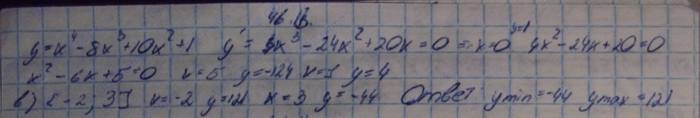 46.16.
y=x⁴-8x³+10x²+1 y'=4x³-24x²+20x=0 x=0 y=1 4x²-24x+20=0
x²-6x+5=0 x=5 y=-124 x=1 y=4
в) [-2; 3] x=-2 y=121 x=3 y=-44 Ответ: ymin=-44 ymax=121